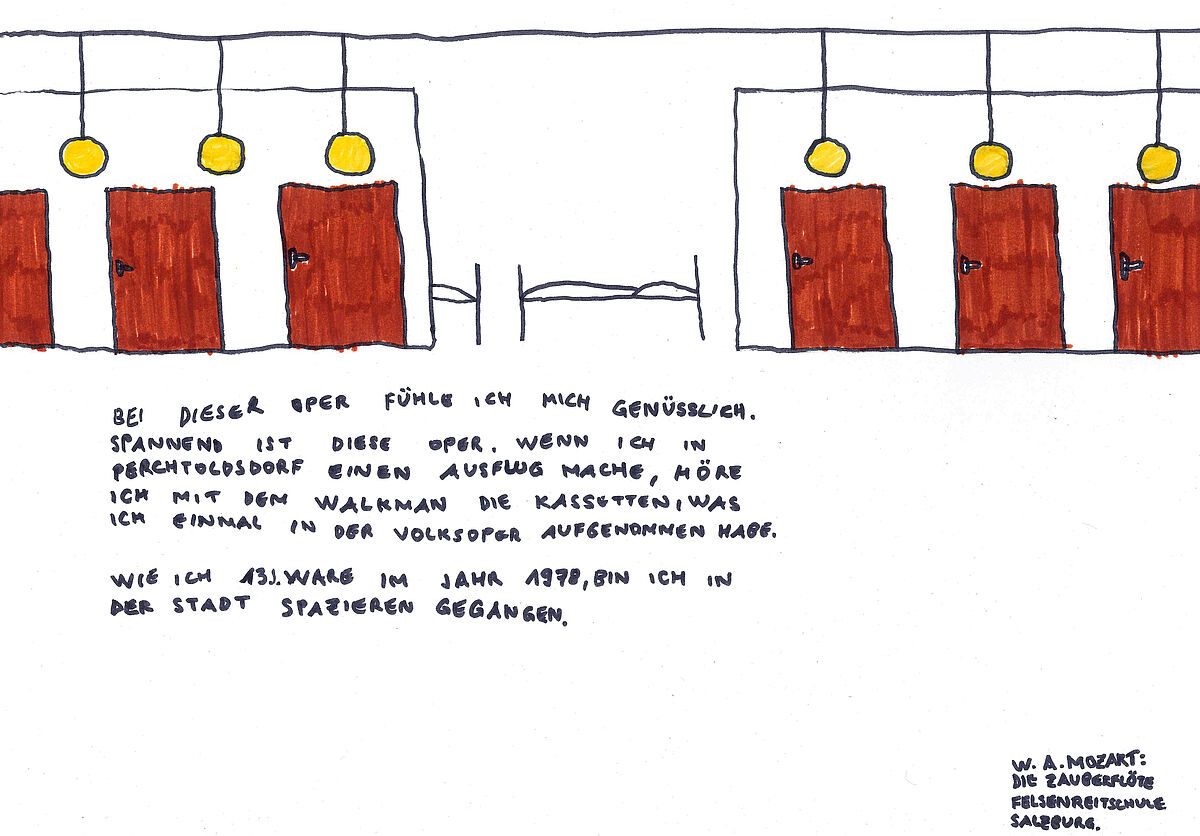 BEI DIESER OPER FÜHLE ICH MICH GENÜSSLICH.
SPANNEND IST DIESE OPER. WENN ICH IN
PERCHTOLDSDORF EINEN AUSFLUG MACHE, HÖRE
ICH MIT DEM WALKMAN DIE KASSETTEN, WAS
ICH EINMAL IN DER VOLKSOPER AUFGENOMMEN HABE.
WIE ICH 13J. WARE IM JAHR 1978, BIN ICH IN
DER STADT SPAZIEREN GEGANGEN.
W. A. MOZART:
DIE ZAUBERFLÖTE
FELSENREITSCHULE
SALZBURG.